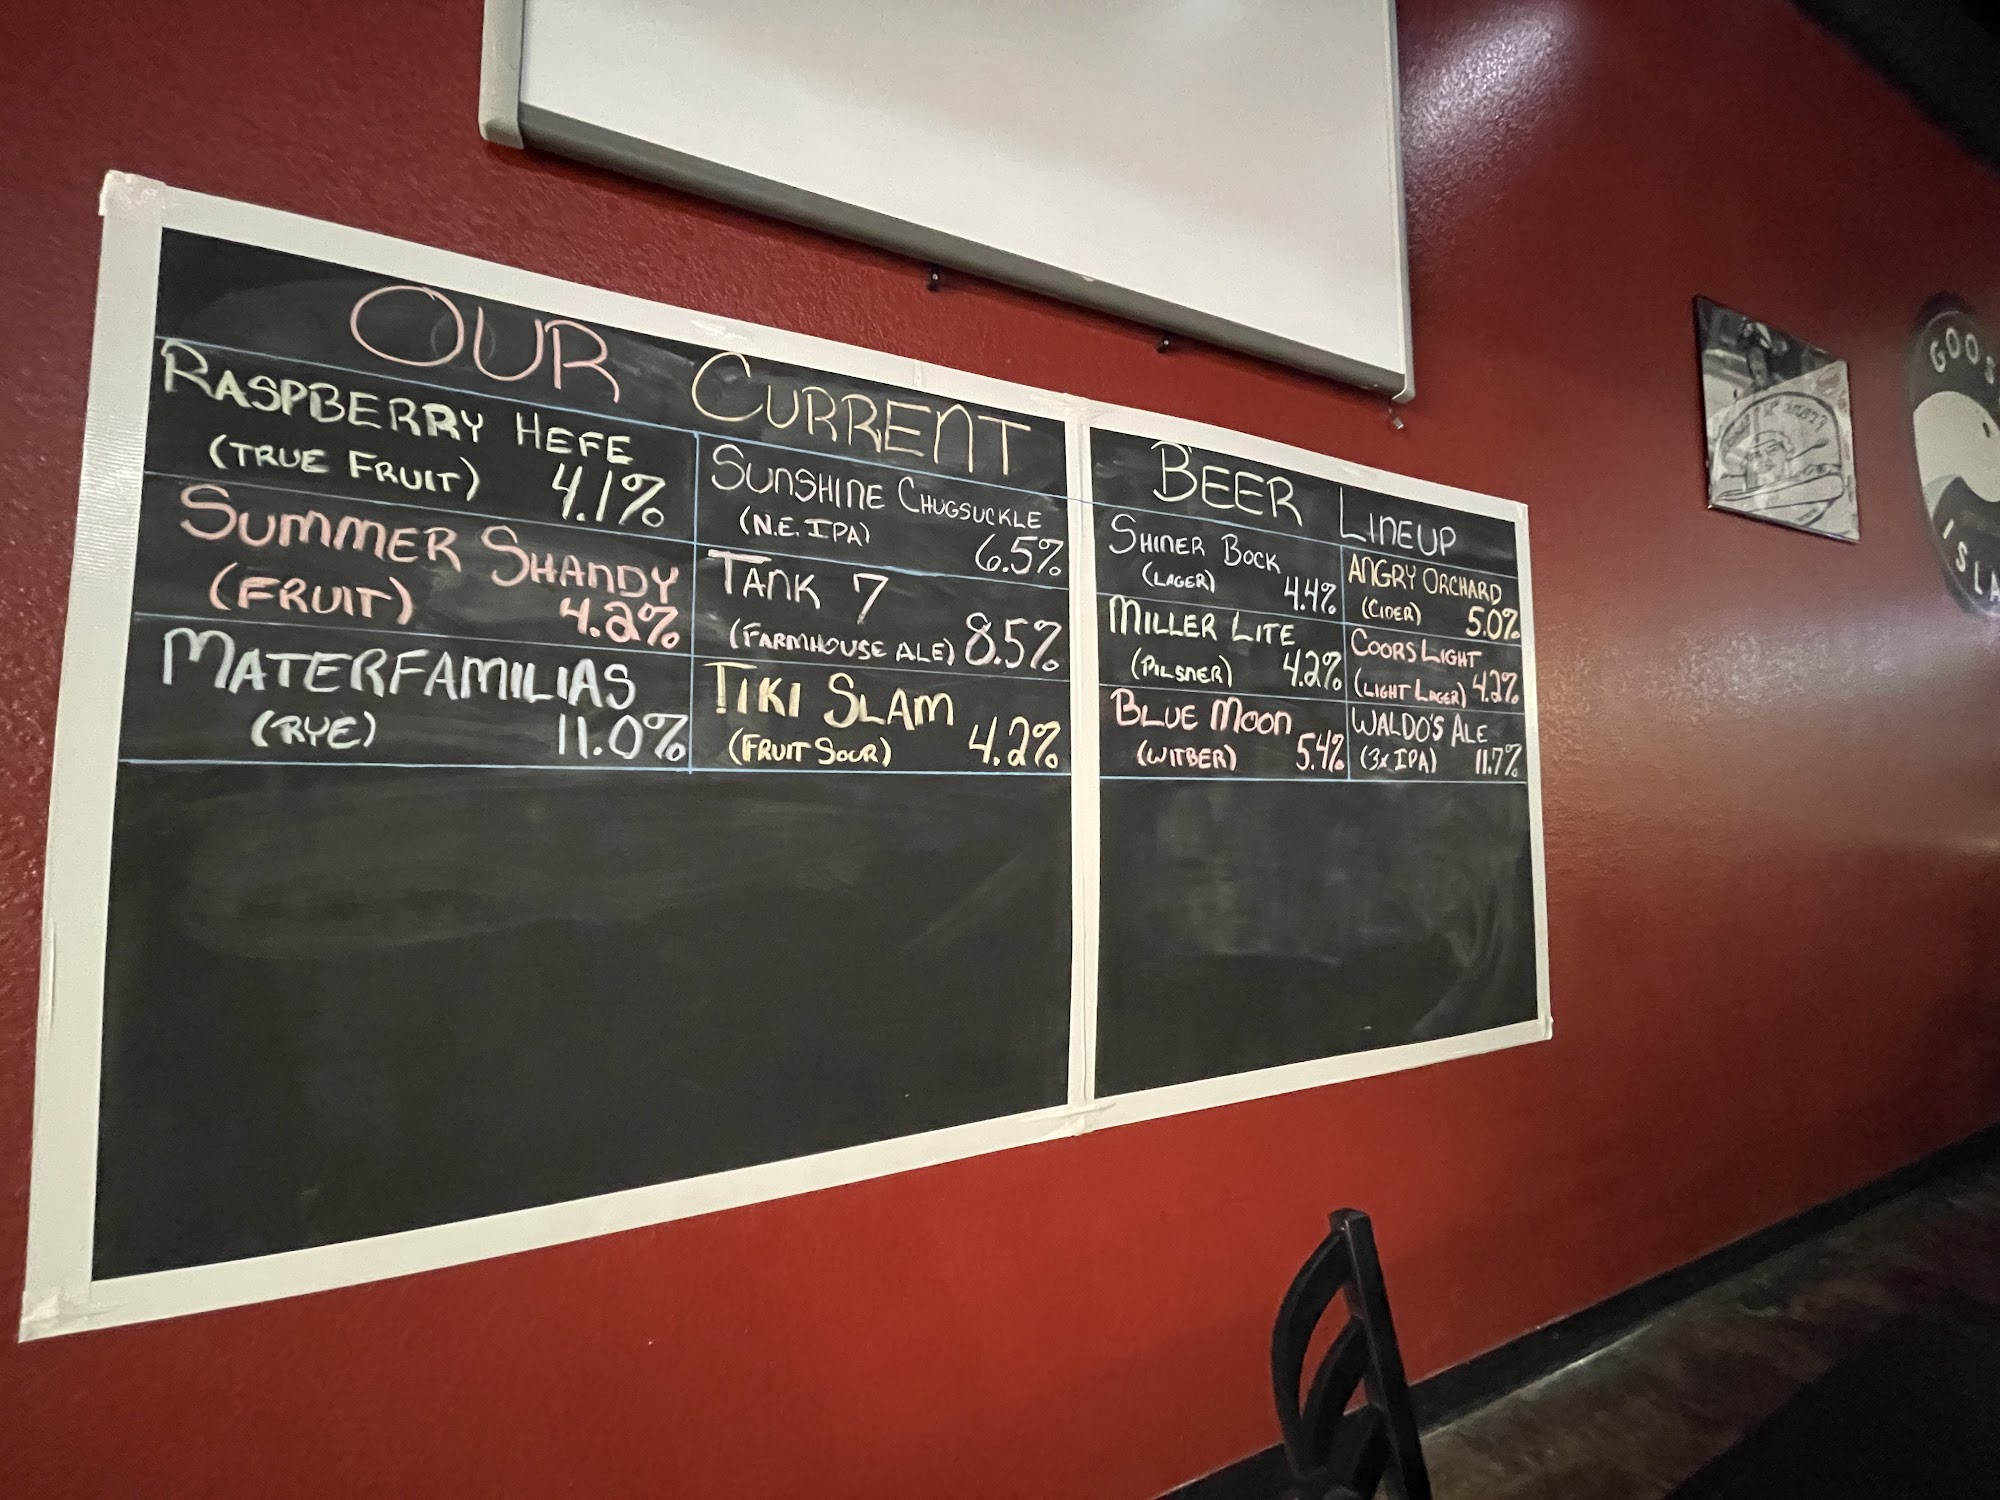 OUR CURRENT BEER LINEUP
RASPBERRY HEFE
(TRUE FRUIT) 4.1%
SUMMER SHANDY
(FRUIT) 4.2%
MATERFAMILIAS
(RYE) 11.0%
SUNSHINE CHUGSUCKLE
(N.E. IPA) 6.5%
TANK 7
(FARMHOUSE ALE) 8.5%
TIKI SLAM
(FRUIT SOUR) 4.2%
SHINER BOCK
(LAGER) 4.4%
MILLER LITE
(PILSNER) 4.2%
BLUE MOON
(WITBER) 5.4%
ANGRY ORCHARD
(CIDER) 5.0%
COORS LIGHT
(LIGHT LAGER) 4.2%
WALDO'S ALE
(3x IPA) 11.7%
GOOS
ISLA